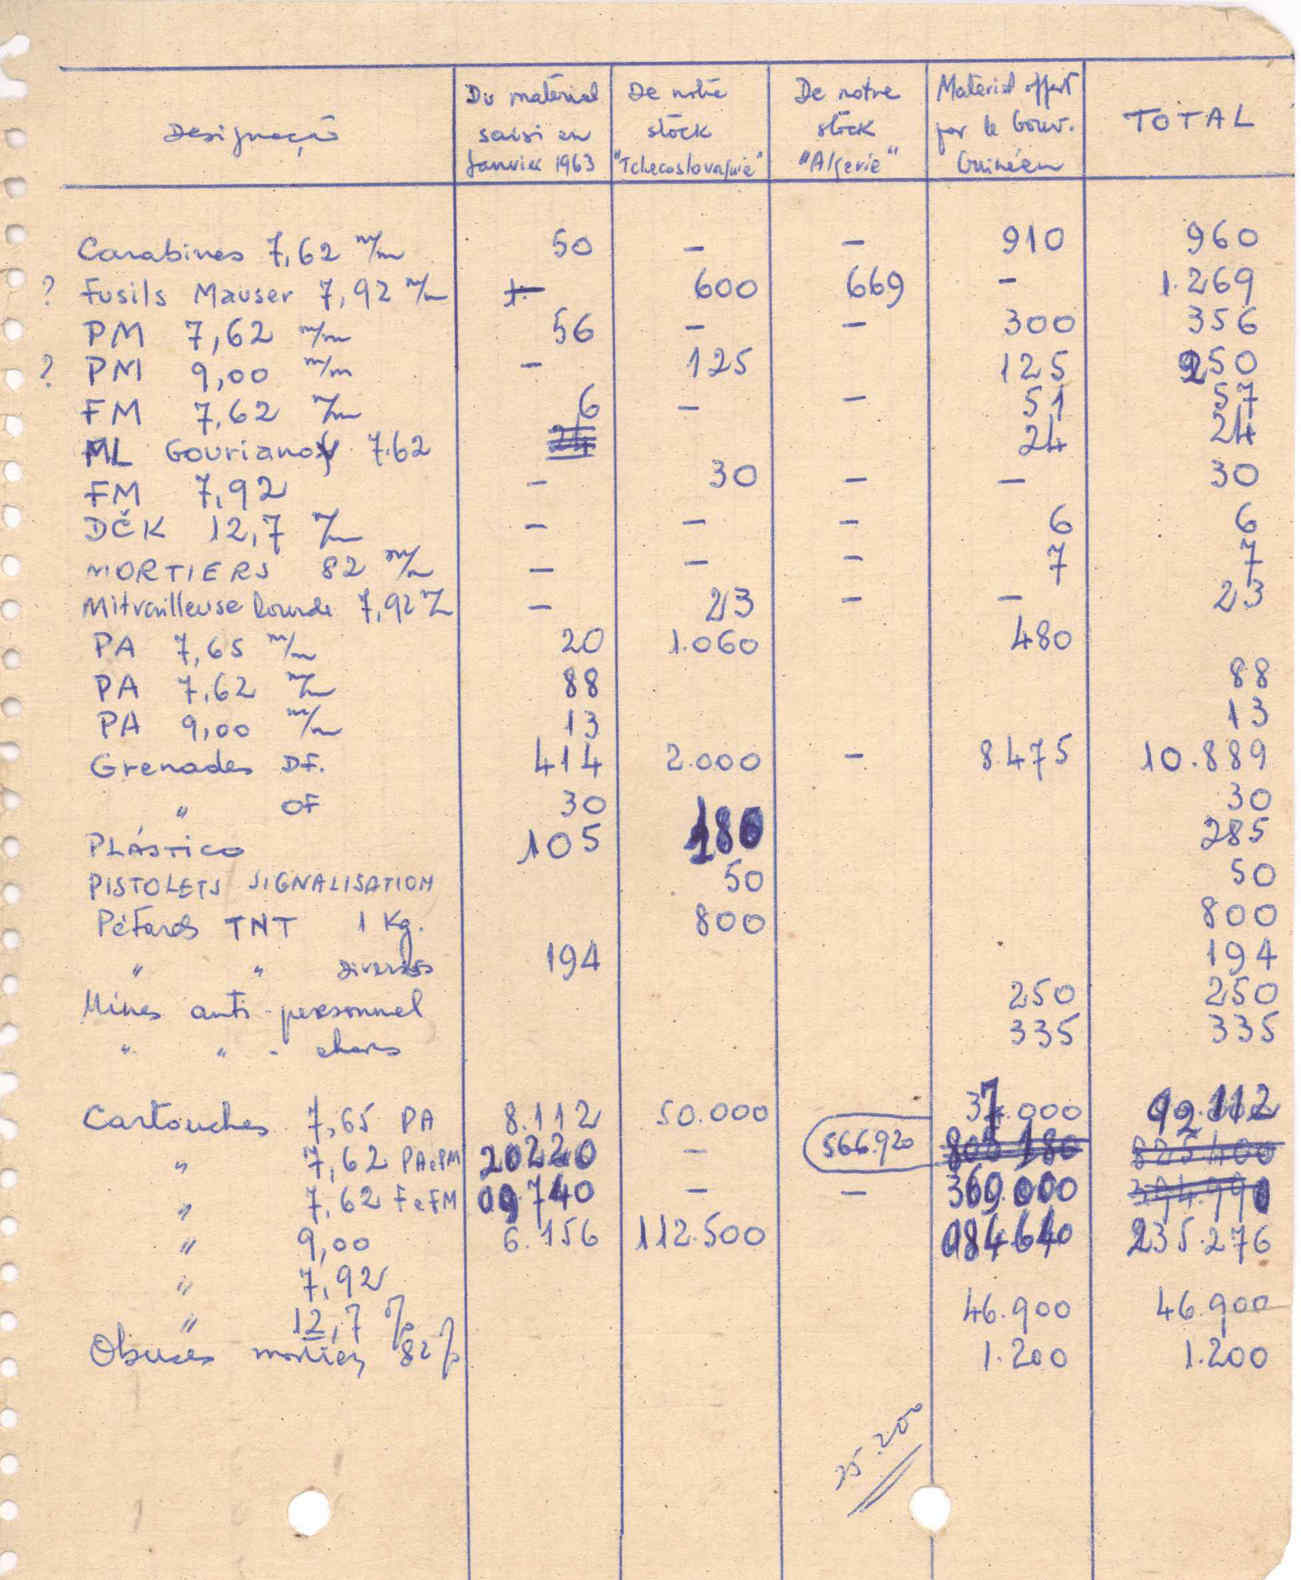 Designação
Du matériel saisi en Janvier 1963
De notre stock "Tchecoslovaquie"
De notre stock "Algerie"
Materiel offert par le Gouv. Guinéen
TOTAL
Carabines 7,62 m/m 50 – – 910 960
? Fusils Mauser 7,92 m/m 600 669 – 1.269
PM 7,62 m/m 56 – – 300 356
? PM 9,00 m/m – 125 125 250
FM 7,62 m/m 6 – – 51 57
ML Gourianov 7.62 24 24
FM 7,92 – 30 – – 30
DČK 12,7 m/m – – – 6 6
MORTIERS 82 m/m – – – 7 7
Mitrailleuse lourde 7,92 m/m – 23 – – 23
PA 7,65 m/m 20 1.060 480
PA 7,62 m/m 88 88
PA 9,00 m/m 13 13
Grenades DF. 414 2.000 – 8475 10.889
" OF 30 30
PLÁSTICO 105 180 285
PISTOLETS SIGNALISATION 50 50
Pétards TNT 1 Kg. 800 800
" " diverses 194 194
Mines anti-personnel 250 250
" " - chars 335 335
Cartouches 7,65 PA 8.112 50.000 37.000 92.112
" 7,62 PA e PM 20220 – 566.920
" 7,62 F e FM 09.740 – – 369.000
" 9,00 6.156 112.500 084.640 235.276
" 7,92
" 12,7 m/m 46.900 46.900
Obuses mortier 82 m/m 1.200 1.200
25.200